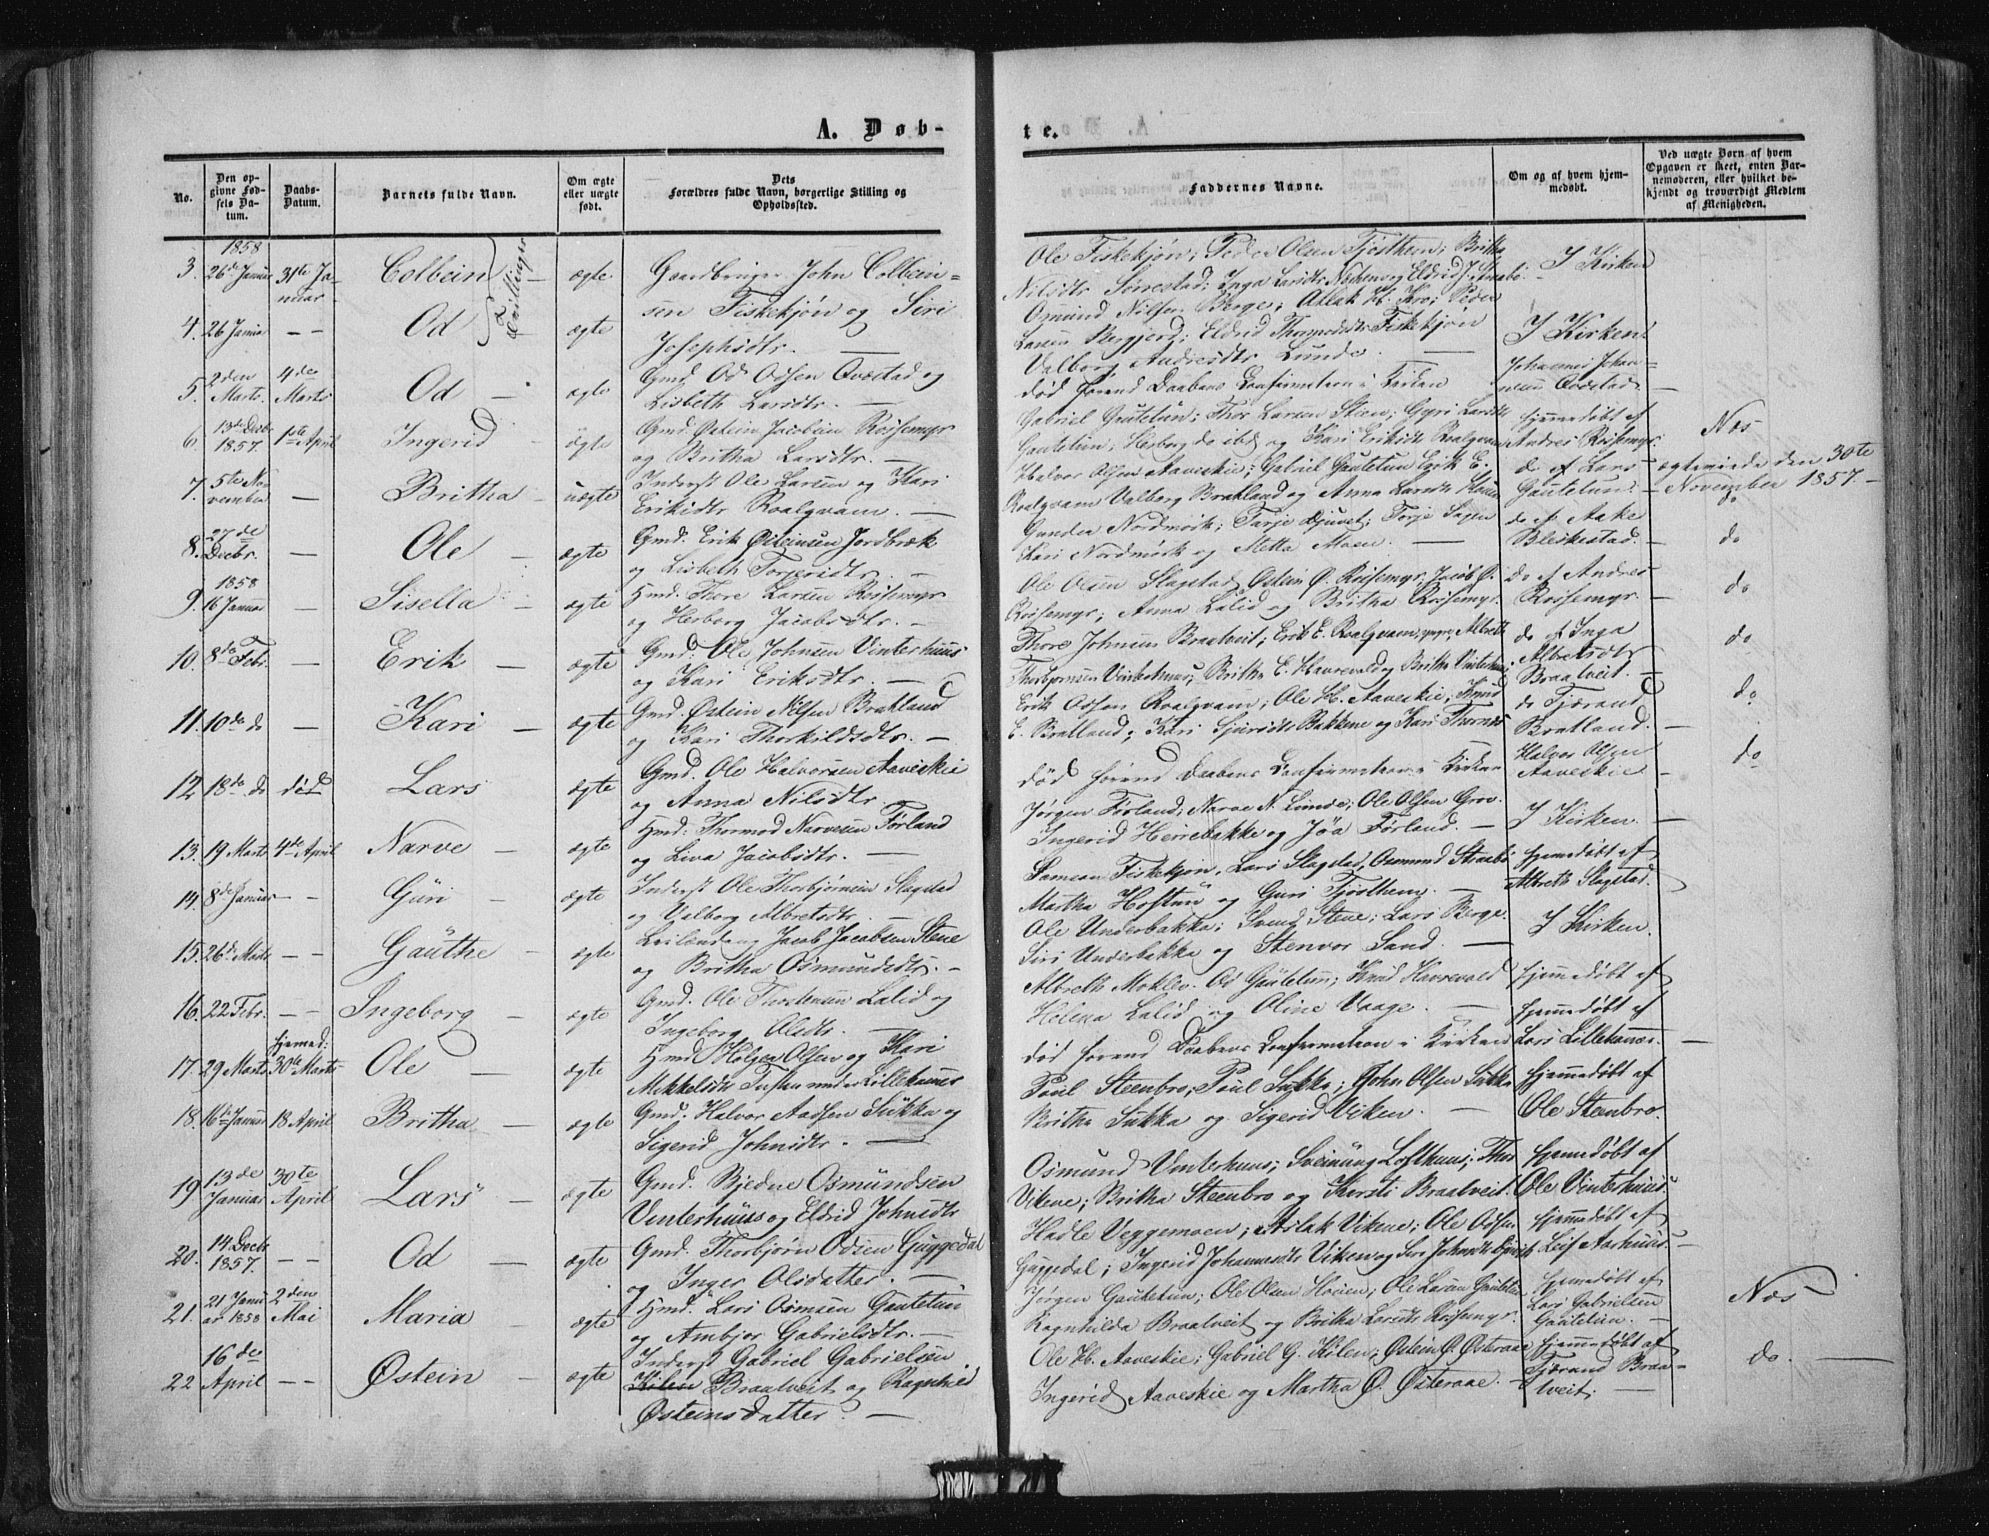 A. Døb-
te.
No.
Den opgivne Fødsels Datum.
Daabs-Datum.
Barnets fulde Navn.
Om ægte eller uægte født.
Dets Forældres fulde Navn, borgerlige Stilling og Opholdssted.
Faddernes Navne.
Om og af hvem hjemmedøbt.
Ved uægte Børn af hvem Opgaven er skeet, enten Barnemoderen, eller hvilket bekjendt og troværdigt Medlem af Menigheden.
1858
3. 26de Januar 31te Januar Colbein Tvillinger ægte Gaardbruger John Colbein-
sen Fiskekjøn og Siri
Josephsdtr.
Ole Fiskekjøn; Peder Olsen Tjøstheim; Britha
Nilsdtr Sørrestad; Inga Larsdtr
I Kirken
4. 26 Janua — Od ægte
Osmund Nilsen Berge; Aslak H. Peder
Larsen Bergjerd; Eldrid Thormodsdtr Fiskekjøn
Valborg Andresdtr Lunde.
I Kirken
5. 2den Marts 4de Marts Od — ægte Gmd Od Odsen Qvæstad og
Lisbeth Larsdtr. —
død førend Daabens Confirmation i Kirken
Johannes Johan-
nesen Qvæstad
6. 13de Decbr 1857. 1ste April Ingerid ægte Gmd. Østein Jacobsen Røisemyr
og Britha Larsdtr. —
Gabriel Gautetun; Thor Larsen Stien; Gyri Larsdtr
Gautetun; Herborg do ibd og Kari Eriksdtr Roalqvam
hjemmedøbt af
Andres Røisemyr.
Næs
7. 5te November — Britha — uægte Inderst Ole Larsen og Kari
Eriksdtr Roalqvam. —
Halvor Olsen Aaveskie; Gabriel Gautetun Erik E.
Roalqvam Valborg Bratland og Anna Larsdtr
do af Lars
Gautetun. —
ægteviede den 30te
November 1857. —
do
8. 27de Decbr. — Ole — ægte Gmd. Erik Østeinsen Jordbræk
og Lisbeth Torgersdtr. —
Gunder Nordmork; Tarje Djuvet; Torje Sagen
Kari Nordmork og Metta Moen. —
do af Aake
Bleskestad. —
do
1858
9. 16 Januar — Sisella — ægte Hmd. Thore Larsen Røisemyr
og Herborg Jacobsdtr. —
Ole Olsen Slagstad, Østein Ø. Røisemyr, Jacob Ø.
Røisemyr; Anna Lalid og Britha Røisemyr.
do af Andres
Røisemyr. —
do
10. 8de Febr. — Erik — ægte Gmd. Ole Johnsen Vinterhuus
og Kari Eriksdtr. —
Thore Johnsen Braatveit; Erik E. Roalqvam, Albreth
Thorbjørnsen Vinterhuus; Britha E. Havrevold og Britha Vinterhuus
do af Inga
Albretsdtr
Braatveit. —
do
11. 10de do — Kari — ægte Gmd. Østein Nilsen Bratland
og Kari Thorkildsdtr. —
Erik Odsen Roalqvam; Ole H. Aaveskie; Knud
E. Bratland; Kari Sjursdtr Bakkene og Kari
do Tjærand
Bratland. —
do
12. 18de do død Lars ægte Gmd. Ole Halvorsen Aaveskie
og Anna Nilsdtr
død førend Daabens Confirmation i Kirken
Halvor Olsen
Aaveskie —
do
13. 19 Marts 4de April Narve — ægte Hmd. Thormod Narvesen Førland
og Liva Jacobsdtr. —
Jørgen Førland; Narve N. Lunde; Ole Olsen Grov
Ingerid Herrebakke og Jøa Førland. —
I Kirken. —
14. 8de Januar — — Guri — ægte Inderst Ole Thorbjørnsen Slagstad
og Valborg Albretsdtr. —
Samson Fiskekjøn, Lars Slagstad, Osmund Straabø
Martha Hoftun og Guri Tjøstheim. —
hjemmedøbt af
Albreth Slagstad.
15. 26de Marts — — Gauthe — ægte Leilænding Jacob Jacobsen Stene
og Britha Osmundsdtr. —
Ole Underbakke; Svend Stene; Lars Berge
Siri Underbakke og Stenvor Sand. —
I Kirken.
16. 22 Febr. — — Ingeborg — ægte Gmd. Ole Thorstensen Lalid og
Ingeborg Olsdtr. —
Albreth Moklev. Od Gautetun; Knud Havrevold
Helena Lalid og Oline Vaage. —
hjemmedøbt af
hjemmed:
17. 29 Marts 30te Marts Ole — ægte Hmd Helge Olsen og Kari
Mikkelsdtr under Lillehamer
død førend Daabens Confirmation i Kirken
hjemmedøbt af
Lars Lillehamer. —
18. 16de Januar 18 April Britha — ægte Gmd. Halvor Aadsen Sukka og
Sigerid Johnsdtr. —
Paul Steenbro, Paul Sukka; John Olsen Sukka
Britha Sukka og Sigerid Viken. —
hjemmedøbt af
Ole Steenbro.
19. 13de Januar 30te April Lars — ægte Gmd. Bjedne Osmundsen
Vinterhuus og Eldrid Johnsdtr
Osmund Vinterhuus; Sveinung Lofthuus; Thor
Vikene; Britha Steenbro og Kirsti Braatveit.
hjemmedøbt af
Ole Vinterhuus.
20. 14 Decbr 1857. — — Od — ægte Gmd. Thorbjørn Odsen Guggedal
og Inger Olsdatter. —
Hadle Veggemoen; Aslak Vikene; Ole Odsen
Guggedal; Ingerid Johannesdtr Viken og Siri Johnsdtr
hjemmedøbt af
Leif Aarhuus. —
21. 21 Januar 1858 2den Mai Maria — ægte Hmd. Lars Osmsen Gautetun
og Ambjor Gabrielsdtr. —
Jørgen Gautetun; Ole Olsen Hoien; Ole Larsen Gautetun
Ragnhilda Braatveit og Britha Larsdtr Røisemyr.
hjemmedøbt af
Lars Gabrielsen
Gautetun. —
Næs
22 16de April — — Østein — ægte Inderst Gabriel Gabrielsen
Kilen Braatveit og Ragnhild
Østeinsdatter. —
Ole H. Aaveskie; Gabriel G. Kilen; Østein Ø. Østeraae
Ingerid Aaveskie og Martha Ø. Østeraae. —
hjemmedøbt af
Tjærand Braa-
tveit. —
do. —